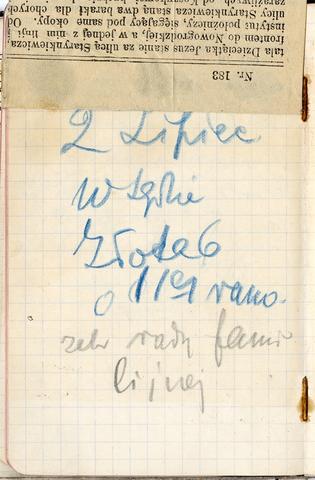 Nr. 183
tala Dzieciątka Jezus stanie za ulicą Starynkiewicza
frontem do Nowogrodzkiej, a w jednej z nim linji
instytut położniczy, sięgający pod same okopy. Od
ulicy Starynkiewicza staną dwa baraki dla chorych
zaraźliwych
2 Lipiec
W Sądzie
Złota 6
o 11ej rano.
zebr rady fami
lijnej